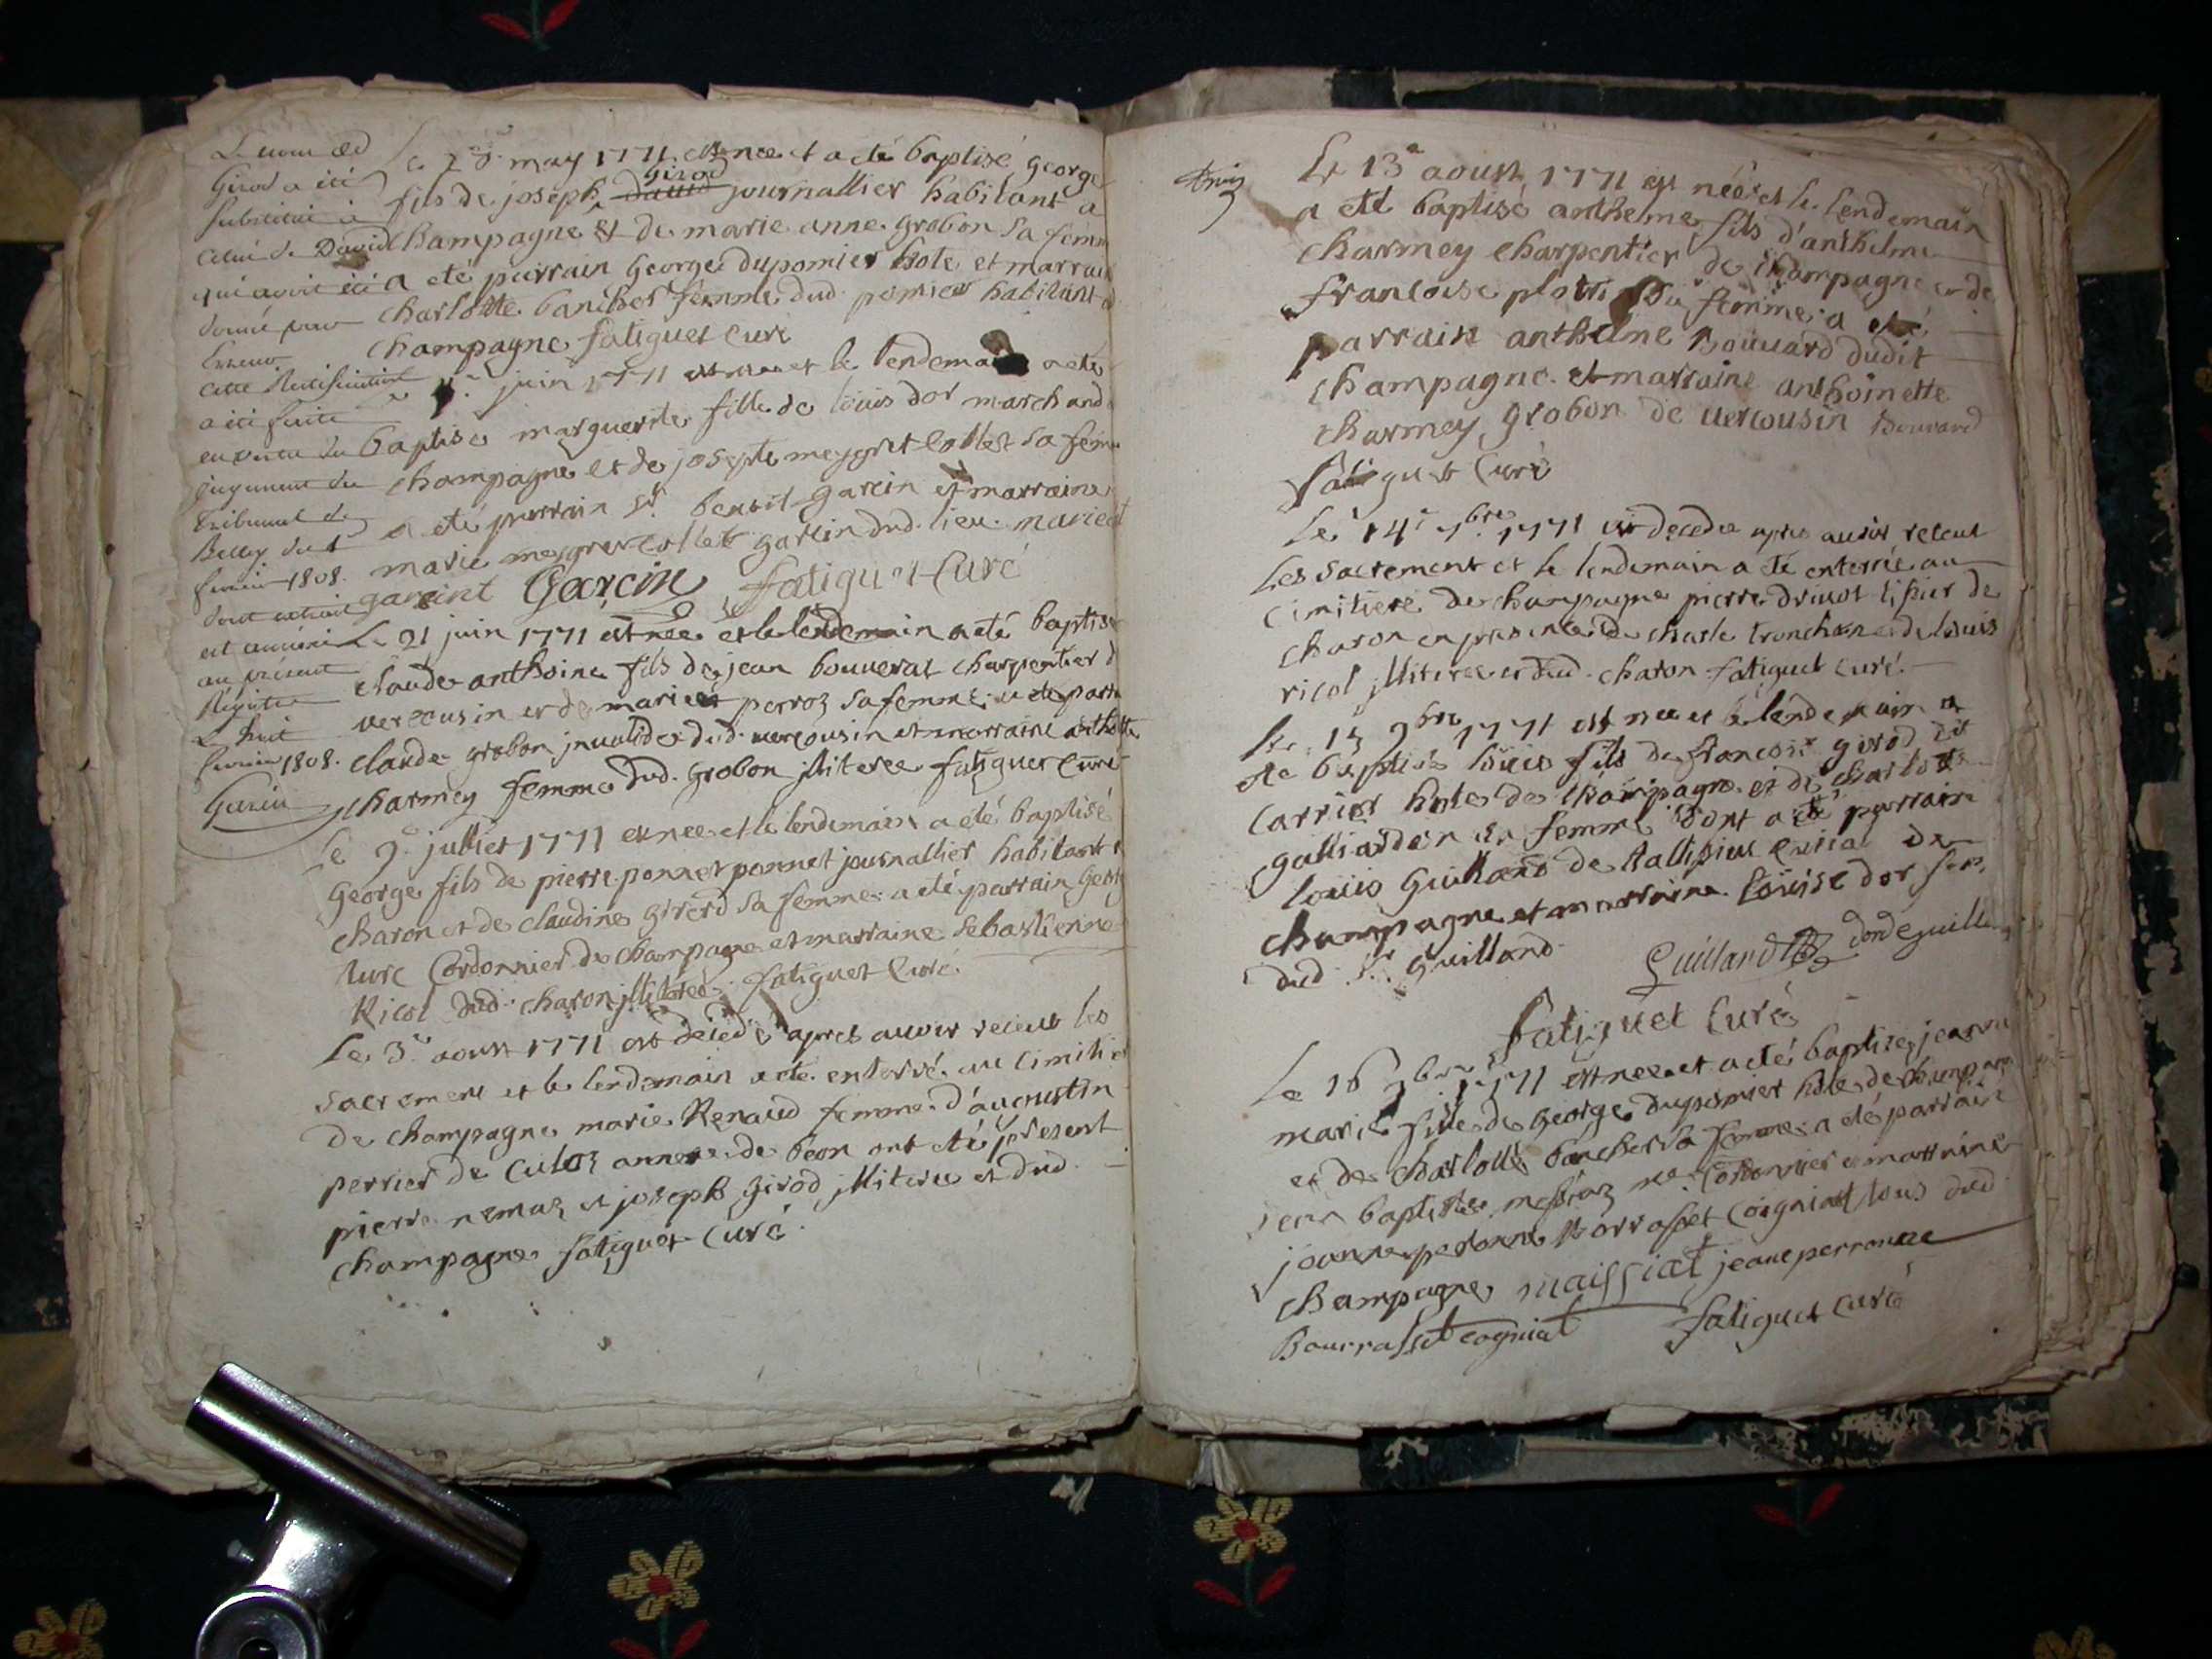 Le nom de
Girod a été
substitué à
celui de David
qui avoit été
donné par
erreur
cette Rectification
a été faite
en vertu du
jugement du
tribunal de
Belley du 1
fevrier 1808.
dont extrait
est annexé
au présent
Régistre
Le huit
fevrier 1808.
Garin
Le may 1771 est nee et a eté baptisé george
fils de joseph david girod journallier habitant a
Champagne et de marie anne grobon sa femm
a eté parrain george dupomier hote et marrain
charlotte bancher femme dud. pomier habitant a
Champagne fatiguet curé
juin 1771 est nee et le lendemain a eté
baptisé marguerite fille de loüis dor marchand
champagne et de josepte meygret collet sa femm
a eté parrain Sr. benoit garcin et marraine
marie meygret collet garcin dud. lieu. marie
garcint Garcin fatiguet curé
Le 21 juin 1771 est nee et le lendemain a eté baptisé
claude anthoine fils de jean bouverat charpentier d
vercousin et de marie perroz sa femme. a eté parr
claude grobon invalide dud. vercousin et marraine
charmey femme dud. grobon jlliteree fatiguet curé
Le 9e. julliet 1771 est nee et le lendemain a eté baptisé
george fils de pierre ponnet ponnet journallier habitant
charon et de claudine girerd sa femme. a eté parrain george
ture Cordonnier de champagne et marraine sebastienne
Ricol dud. charon jlliteree. fatiguet curé.
Le 3e. aoust 1771 est decedé apres auoir receut les
sacrement et le lendemain a eté enterré au cimitie
de champagne marie Renaud femme d'augustin
perrier de culoz annexe de béon ont eté present
pierre nemoz et joseph girod jlliteree et dud.
champagne fatiguet curé.
Le 13e aoust 1771 est née et le lendemain
a eté baptisé anthelme fils d'anthelme
charmey charpentier de champagne et de
francoise plotti sa femme a eté
parrain anthelme Bouuard dudit
champagne. et marraine anthoinette
charmey grobon de vercousin Bouvard
fatiguet curé
Le 14e 7bre. 1771 est decedee apres auoir receut
les sacrement et le lendemain a eté enterrée au
cimitiere de champagne pierre druot tisier de
charon en presence de charle tronchon et de loüis
ricol jlliteree et dud. charon. fatiguet curé.
Le. 15 9bre 1771 est nee et le lendemain a
eté baptisé loüis fils de francois girod dit
carrier hote de champagne. et de charlotte
galliardon sa femme dont a eté parrain
loüis Guilland de tallisieu curial de
champagne et marraine. loüise dor fem.
dud. Sr. guilland.
Guilland dor de guill
fatiguet curé
Le 16 9bre 1771 est nee et a eté baptisee jeanne
marie fille de george dupomier hote de champagne
et de charlotte bancher sa femme. a eté parrain
jean baptiste messiaz me. Cordonnier et marraine
jeanne peronne borrasset coigniat tous dud.
champagne maissiat jeane perronne
Bourrasset cogniat fatiguet curé